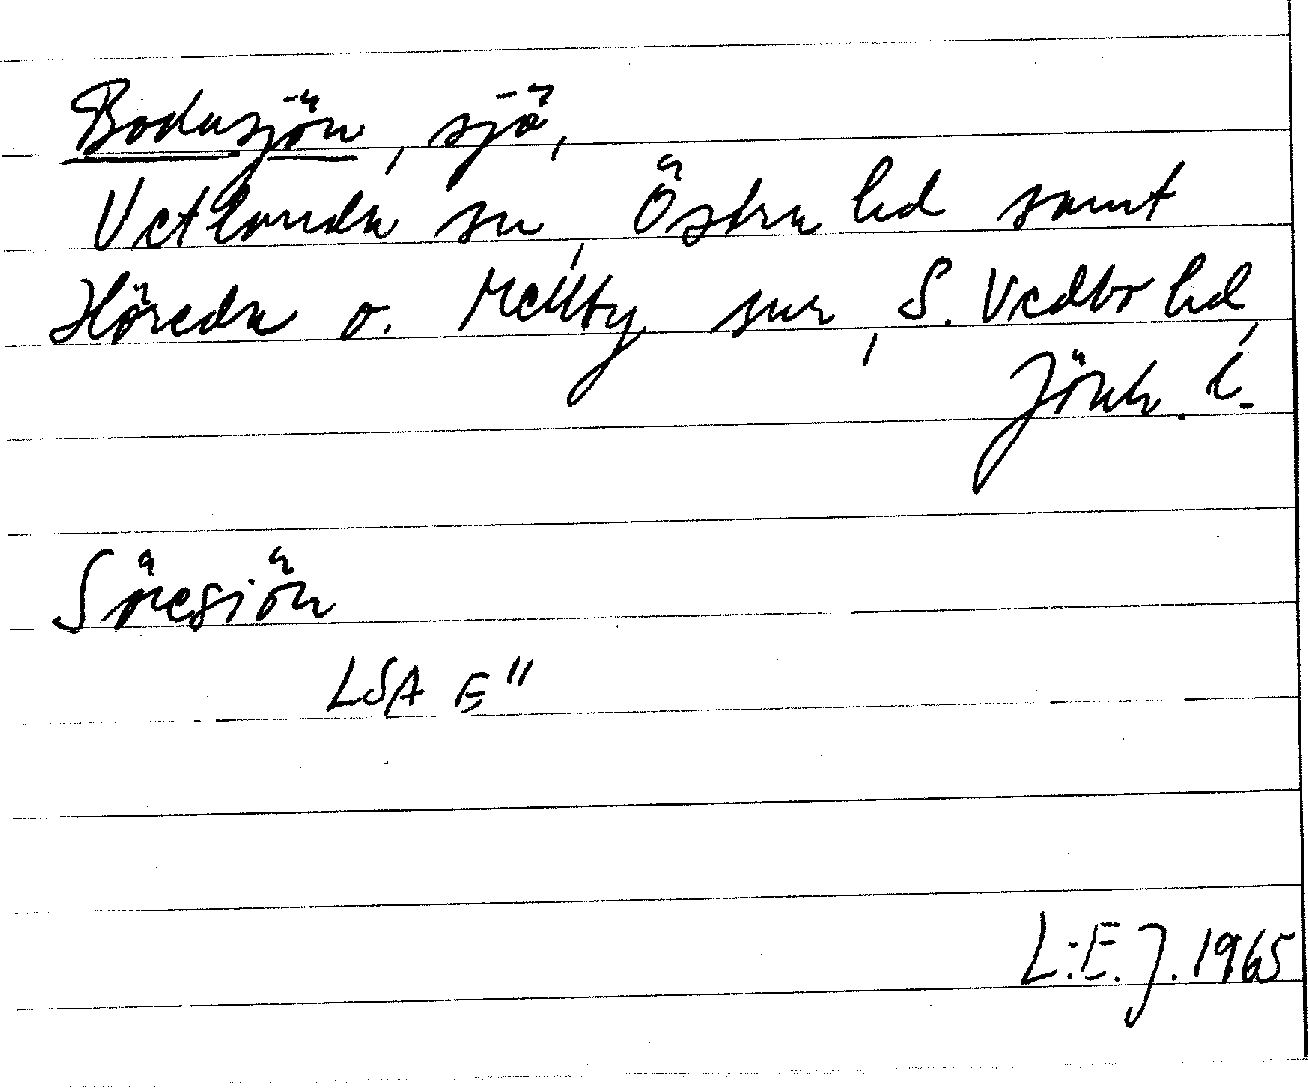 Bodasjön, sjö,
Vetlanda sn, Östra hd samt
Höreda o. Mellby snr, S. Vedbo hd,
Jönk. l.
Sörsjön
LSA E"
L:E. J. 1965